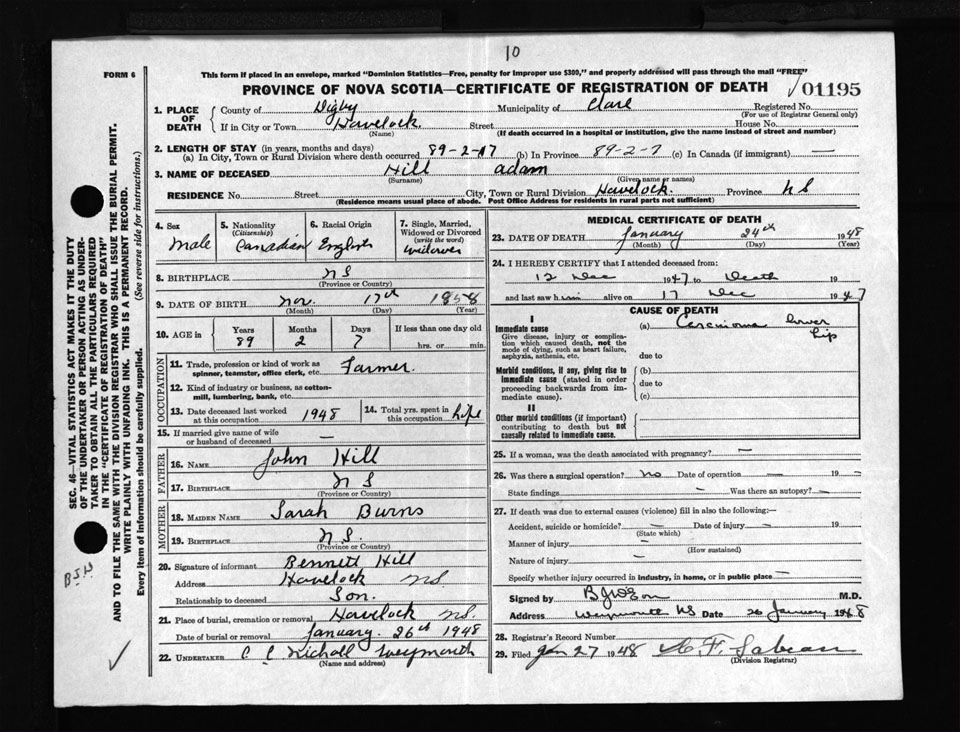 10
FORM 6
This form if placed in an envelope, marked "Dominion Statistics—Free, penalty for improper use $300," and properly addressed will pass through the mail "FREE"
PROVINCE OF NOVA SCOTIA—CERTIFICATE OF REGISTRATION OF DEATH
01195
1. PLACE OF DEATH
County of Digby Municipality of Clare Registered No.
(For use of Registrar General only)
If in City or Town Havelock Street House No.
(Name) (If death occurred in a hospital or institution, give the name instead of street and number)
2. LENGTH OF STAY (in years, months and days)
(a) In City, Town or Rural Division where death occurred 89-2-17 (b) In Province 89-2-7 (c) In Canada (if immigrant) —
3. NAME OF DECEASED Hill adam
(Surname) (Given name or names)
RESIDENCE No. Street City, Town or Rural Division Havelock. Province NS
(Residence means usual place of abode. Post Office Address for residents in rural parts not sufficient)
4. Sex
male
5. Nationality
(Citizenship)
Canadian
6. Racial Origin
English
7. Single, Married, Widowed or Divorced
(write the word)
widower
8. BIRTHPLACE NS
(Province or Country)
9. DATE OF BIRTH Nov. 17th 1858
(Month) (Day) (Year)
10. AGE in
Years Months Days If less than one day old
89 2 7 hrs. or min.
OCCUPATION
11. Trade, profession or kind of work as
spinner, teamster, office clerk, etc. Farmer.
12. Kind of industry or business, as cotton-
mill, lumbering, bank, etc.
13. Date deceased last worked
at this occupation 1948
14. Total yrs. spent in
this occupation life
15. If married give name of wife
or husband of deceased —
FATHER
16. NAME John Hill
17. BIRTHPLACE NS
(Province or Country)
MOTHER
18. MAIDEN NAME Sarah Burns
19. BIRTHPLACE N S.
(Province or Country)
20. Signature of informant Bennett Hill
Address Havelock NS
Relationship to deceased Son.
21. Place of burial, cremation or removal Havelock NS.
Date of burial or removal January. 26th 1948
22. UNDERTAKER C C Nicholl Weymouth
(Name and address)
MEDICAL CERTIFICATE OF DEATH
23. DATE OF DEATH January 24th 1948
(Month) (Day) (Year)
24. I HEREBY CERTIFY that I attended deceased from:
12 Dec 1947 to Death 19
and last saw him alive on 17 Dec 1947
CAUSE OF DEATH
I
Immediate cause
Give disease, injury or complica-
tion which caused death, not the
mode of dying, such as heart failure,
asphyxia, asthenia, etc.
(a) Carcinoma lower
lip
due to
Morbid conditions, if any, giving rise to
immediate cause (stated in order
proceeding backwards from im-
mediate cause).
(b)
due to
(c)
II
Other morbid conditions (if important)
contributing to death but not
causally related to immediate cause.
25. If a woman, was the death associated with pregnancy? —
26. Was there a surgical operation? no Date of operation — 19 —
State findings — Was there an autopsy? —
27. If death was due to external causes (violence) fill in also the following:—
Accident, suicide or homicide? — Date of injury — 19
(State which)
Manner of injury —
(How sustained)
Nature of injury —
Specify whether injury occurred in industry, in home, or in public place —
Signed by M.D.
Address Weymouth NS Date 26 January 1948
28. Registrar's Record Number
29. Filed Jan 27 1948
(Division Registrar)
SEC. 46—VITAL STATISTICS ACT MAKES IT THE DUTY
OF THE UNDERTAKER OR PERSON ACTING AS UNDER-
TAKER TO OBTAIN ALL THE PARTICULARS REQUIRED
IN THE "CERTIFICATE OF REGISTRATION OF DEATH" AND
TO FILE THE SAME WITH THE DIVISION REGISTRAR WHO SHALL ISSUE THE BURIAL PERMIT.
WRITE PLAINLY WITH UNFADING INK. THIS IS A PERMANENT RECORD.
Every item of information should be carefully supplied. (See reverse side for instructions.)